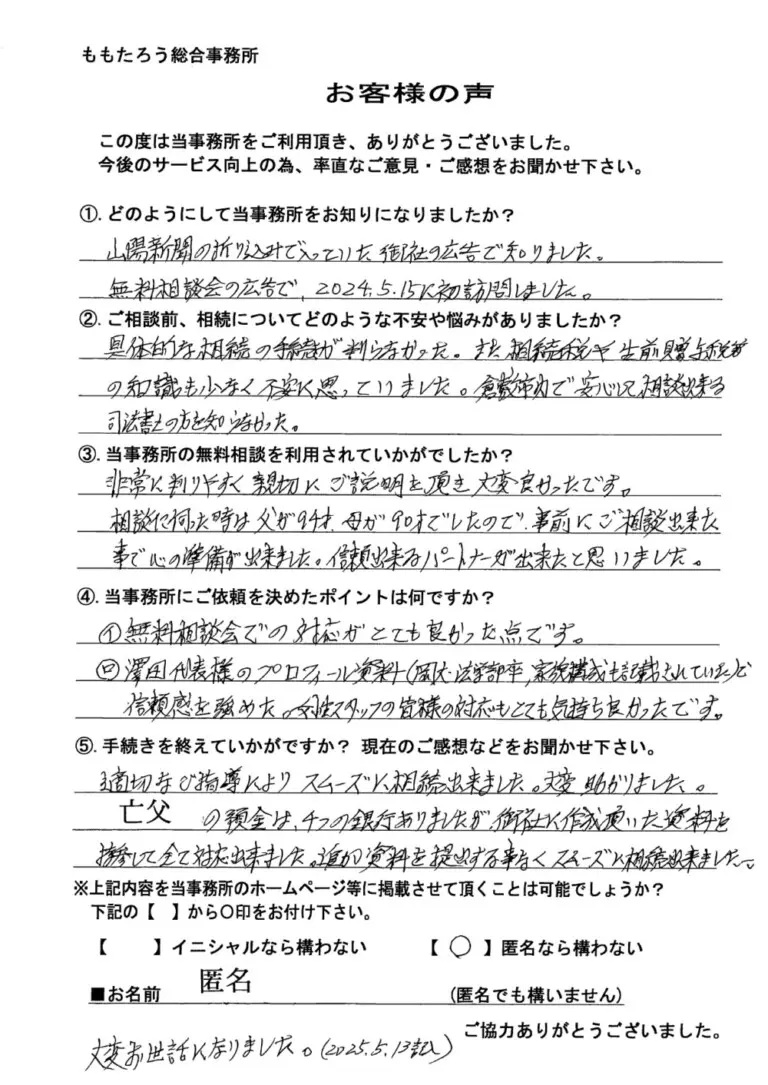 ももたろう総合事務所
お客様の声
この度は当事務所をご利用頂き、ありがとうございました。
今後のサービス向上の為、率直なご意見・ご感想をお聞かせ下さい。
①. どのようにして当事務所をお知りになりましたか？
山陽新聞の折り込みで入っていた御社の広告で知りました。
無料相談会の広告で、2024.5.15に初訪問しました。
②. ご相談前、相続についてどのような不安や悩みがありましたか？
具体的な相続の手続が判らなかった。また相続税や生前贈与税等
の知識も少なく不安に思っていました。倉敷市内で安心して相談出来る
司法書士の方を知らなかった。
③. 当事務所の無料相談を利用されていかがでしたか？
非常に判りやすく親切にご説明を頂き大変良かったです。
相談に伺った時は父が94才、母が90才でしたので、事前にご相談出来た
事で心の準備が出来ました。信頼出来るパートナーが出来たと思いました。
④. 当事務所にご依頼を決めたポイントは何ですか？
㋑無料相談会での対応がとても良かった点です。
㋺澤田代表様のプロフィール資料(岡大法学部卒、家族構成も記載されていた)で
信頼感を強めた。女性スタッフの皆様の対応もとても気持ち良かったです。
⑤. 手続きを終えていかがですか？ 現在のご感想などをお聞かせ下さい。
適切なご指導によりスムーズに相続出来ました。大変助かりました。
亡父 の預金は、4つの銀行ありましたが、御社に作成頂いた資料を
持参して全て対応出来ました。追加資料を提出する事なくスムーズに相続出来ました。
※上記内容を当事務所のホームページ等に掲載させて頂くことは可能でしょうか？
下記の【 】から〇印をお付け下さい。
【 】イニシャルなら構わない 【 〇 】匿名なら構わない
■お名前 匿名 (匿名でも構いません)
ご協力ありがとうございました。
大変お世話になりました。(2025.5.13記)